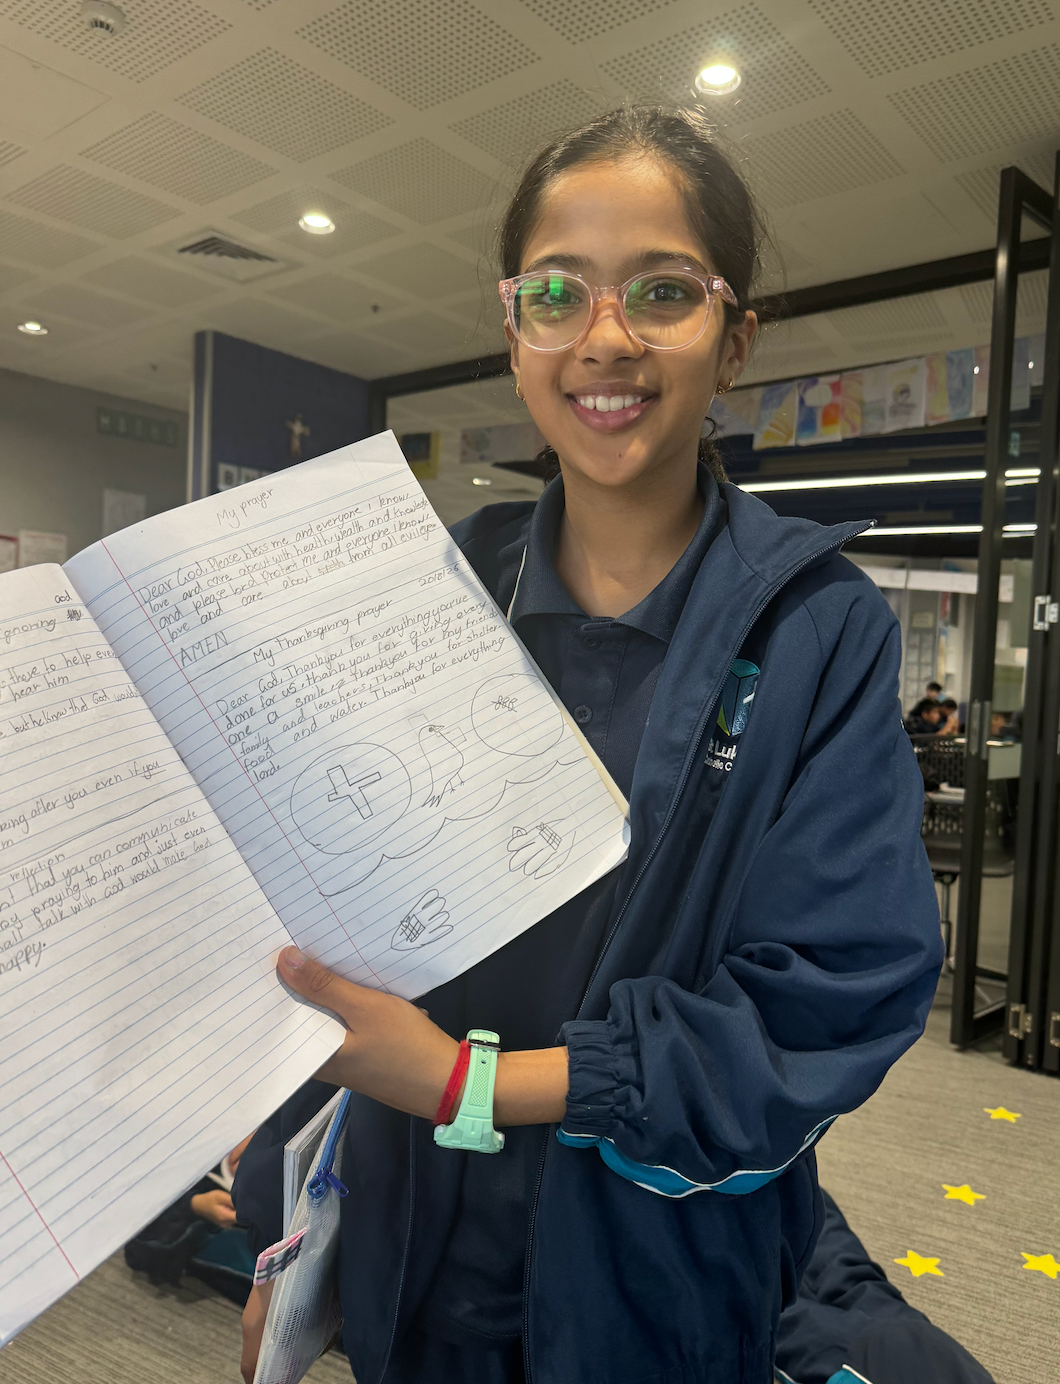 God
ignoring
there to help even
hear him
but he knew that God would
being after you even if you
reflection
that you can communicate
by praying to him and just even
talk with God would make God
happy.
My prayer
Dear God, Please bless me and everyone i know,
love and care about with health, wealth and knowledge
and please lord protect me and everyone I know,
love and care about from all evil
AMEN
My Thanksgiving prayer
Dear God, Thankyou for everything you've
done for us, thank you for giving every
one a smile, thankyou for my friends
family and teachers, thankyou for shelter
food and water. Thankyou for everything
lord.
Luk